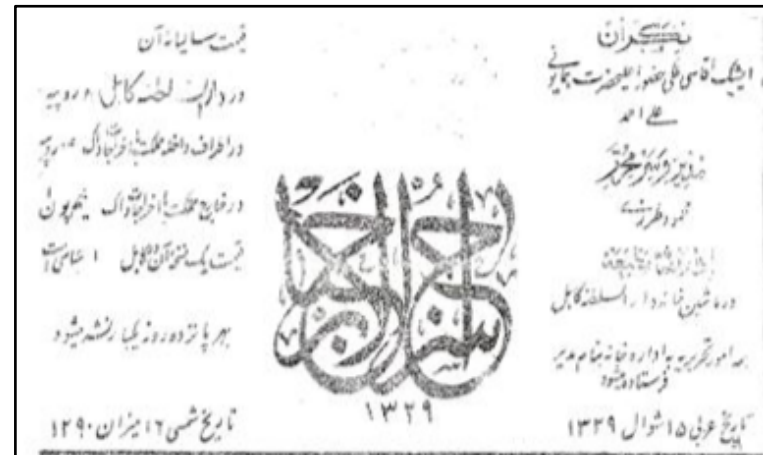 نگران
ایشک آقاسی ملکی حضور اعلیحضرت همایونی
علی احمد
مدیر و سر محرر
محمود طرزی
در ماشین خانه دار السلطنه کابل
همه امور تحریریه به اداره خانه بنام مدیر
فرستاده میشود
تاریخ عربی ۱۵ شوال ۱۳۲۹
سراج الاخبار
۱۳۲۹
قیمت سالیانه آن
در دار السلطنه کابل روپیه
در اطراف داخله مملکت با اخراجات داک روپیه
در خارج مملکت با اخراجات داک نیم پون
قیمت یک نسخه آن در کابل ۱ عباسی است
بهر پانزده روز یکبار نشر میشود
تاریخ شمسی ۱۶ میزان ۱۲۹۰